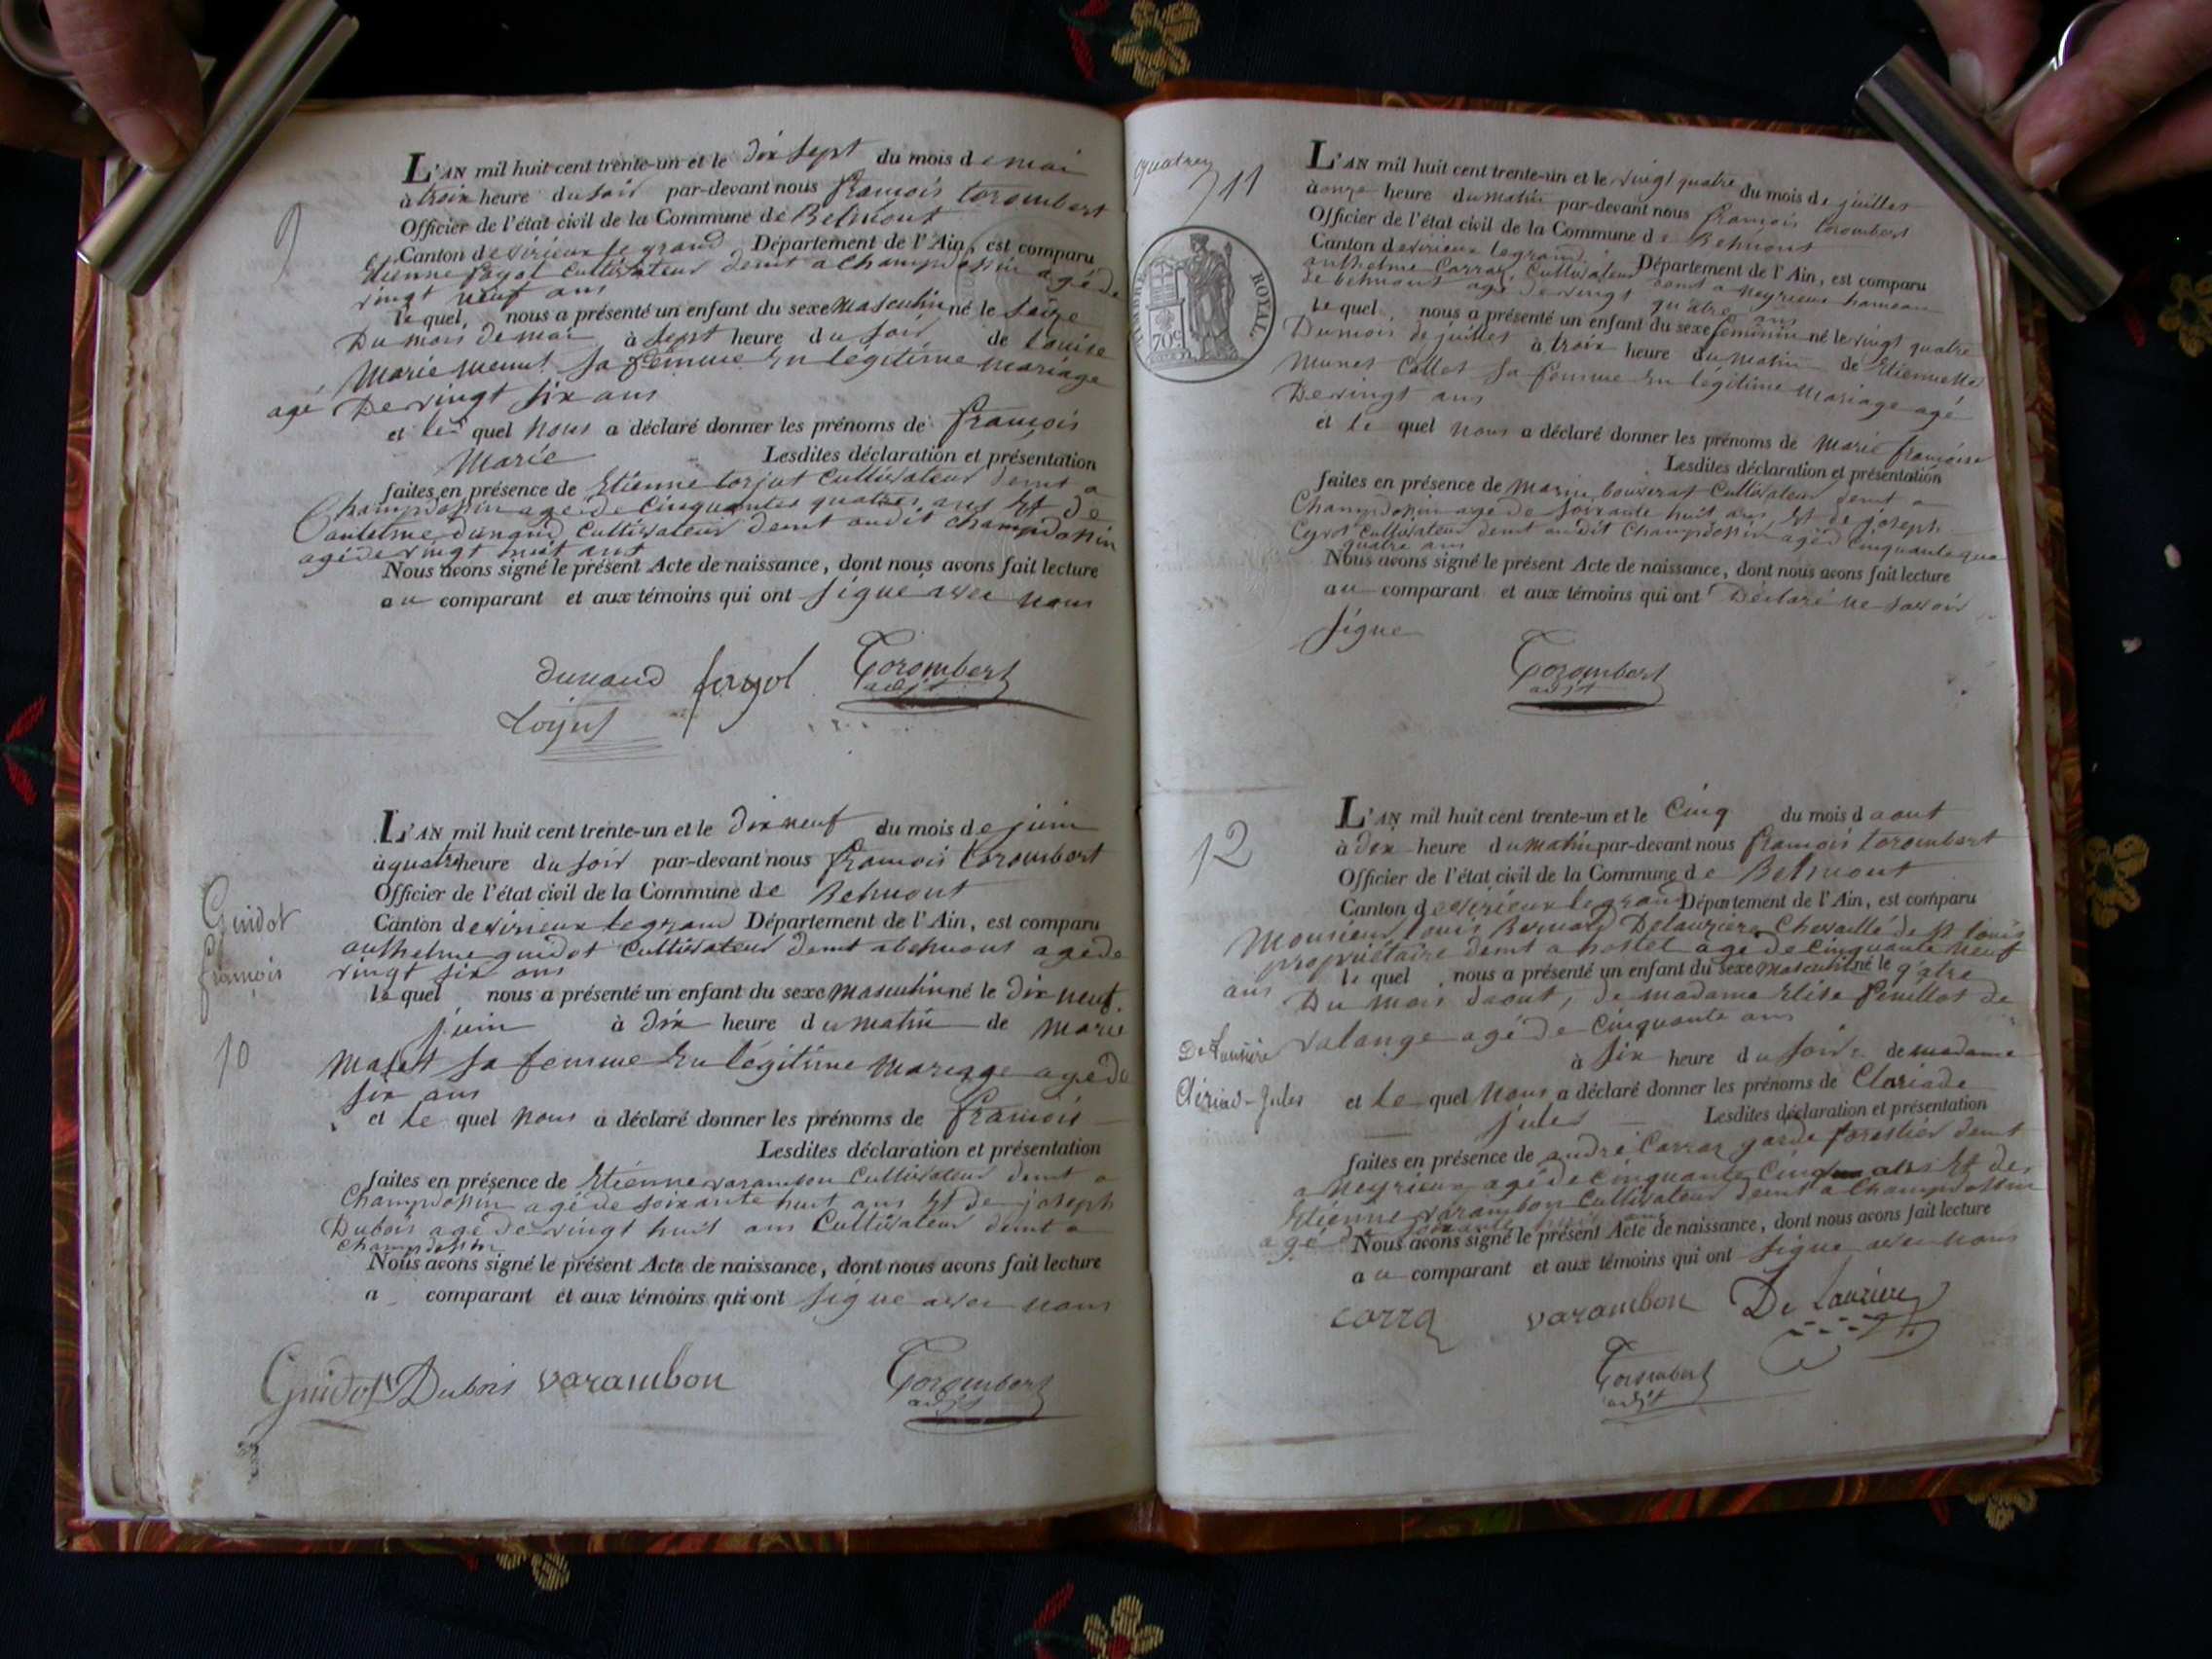 9
L'AN mil huit cent trente-un et le dix sept du mois de mai
à troix heure du soir par-devant nous françois torombert
Officier de l'état civil de la Commune de Belmont
Canton de virieux le grand Département de l'Ain, est comparu
Etienne fayol Cultivateur demt a Champdossin agé de
vingt neuf ans
le quel, nous a présenté un enfant du sexe masculin né le saize
Du mois de mai à sept heure du soir de Louise
Marie sa femme En légitime mariage
agé De vingt six ans
et le quel nous a déclaré donner les prénoms de françois
Marie Lesdites déclaration et présentation
faites en présence de Etienne torjut Cultivateur demt a
Champdossin agé de Cinquantes quatres ans Et de
antelme dunand Cultivateur demt audit Champdossin
agé de vingt huit ans
Nous avons signé le présent Acte de naissance, dont nous avons fait lecture
au comparant et aux témoins qui ont signé avec nous
dunand fayol Torombert
adjt
Torjut
Guidot
françois
10
L'AN mil huit cent trente-un et le dix neuf du mois de juin
à quatre heure du soir par-devant nous françois torombert
Officier de l'état civil de la Commune de Belmont
Canton de virieux le grand Département de l'Ain, est comparu
anthelme guidot Cultivateur demt a belmont agé de
vingt six ans
le quel nous a présenté un enfant du sexe masculin né le dix neuf
juin à dix heure du matin de marie
sa femme En légitime mariage agé de
six ans
et le quel nous a déclaré donner les prénoms de françois
Lesdites déclaration et présentation
faites en présence de Etienne varambon Cultivateur demt a
Champdossin agé de soixante huit ans Et de joseph
Dubois agé de vingt huit ans Cultivateur demt a
Champdossin
Nous avons signé le présent Acte de naissance, dont nous avons fait lecture
a comparant et aux témoins qui ont signé avec nous
Guidot Dubois varambon Torombert
adjt
quatre
11
TIMBRE ROYAL
70c
L'AN mil huit cent trente-un et le vingt quatre du mois de juillet
à onze heure du matin par-devant nous françois torombert
Officier de l'état civil de la Commune de Belmont
Canton de virieux le grand Département de l'Ain, est comparu
anthelme Carraz, Cultivateur demt a neyrieux hameau
de belmont agé de vingt quatre ans
le quel, nous a présenté un enfant du sexe feminin né le vingt quatre
Du mois de juillet à troix heure du matin de Etiennette
Collet sa femme En légitime mariage agé
De vingt ans
et le quel nous a déclaré donner les prénoms de Marie françoise
Lesdites déclaration et présentation
faites en présence de marin bouverat Cultivateur demt a
Champdossin agé de soixante huit ans Et de joseph
Cultivateur demt audit Champdossin agé d Cinquante qua
quatre ans
Nous avons signé le présent Acte de naissance, dont nous avons fait lecture
au comparant et aux témoins qui ont Déclaré ne savoir
signe
Torombert
adjt
12
De Laurière
Clériad-Jules
L'AN mil huit cent trente-un et le Cinq du mois d aout
à dix heure du matin par-devant nous françois torombert
Officier de l'état civil de la Commune de Belmont
Canton de virieux le grand Département de l'Ain, est comparu
Monsieur louis Bernard Delaurière Chevaillé de st louis
propriétaire demt a hostel agé de Cinquante neuf
ans le quel, nous a présenté un enfant du sexe masculin né le
Du mois daout, de madame Elise feuillot de
valange agé de Cinquante ans
à six heure du soir de madame
et le quel nous a déclaré donner les prénoms de Clariade
jules Lesdites déclaration et présentation
faites en présence de andré Carraz garde forestier demt
a neyrieux agé de cinquante Cinq ans Et de
Etienne varambon Cultivateur demt a Champdossin
agé de soixante ans
Nous avons signé le présent Acte de naissance, dont nous avons fait lecture
au comparant et aux témoins qui ont signé avec nous
carra varambon De Laurière
Torombert
adjt